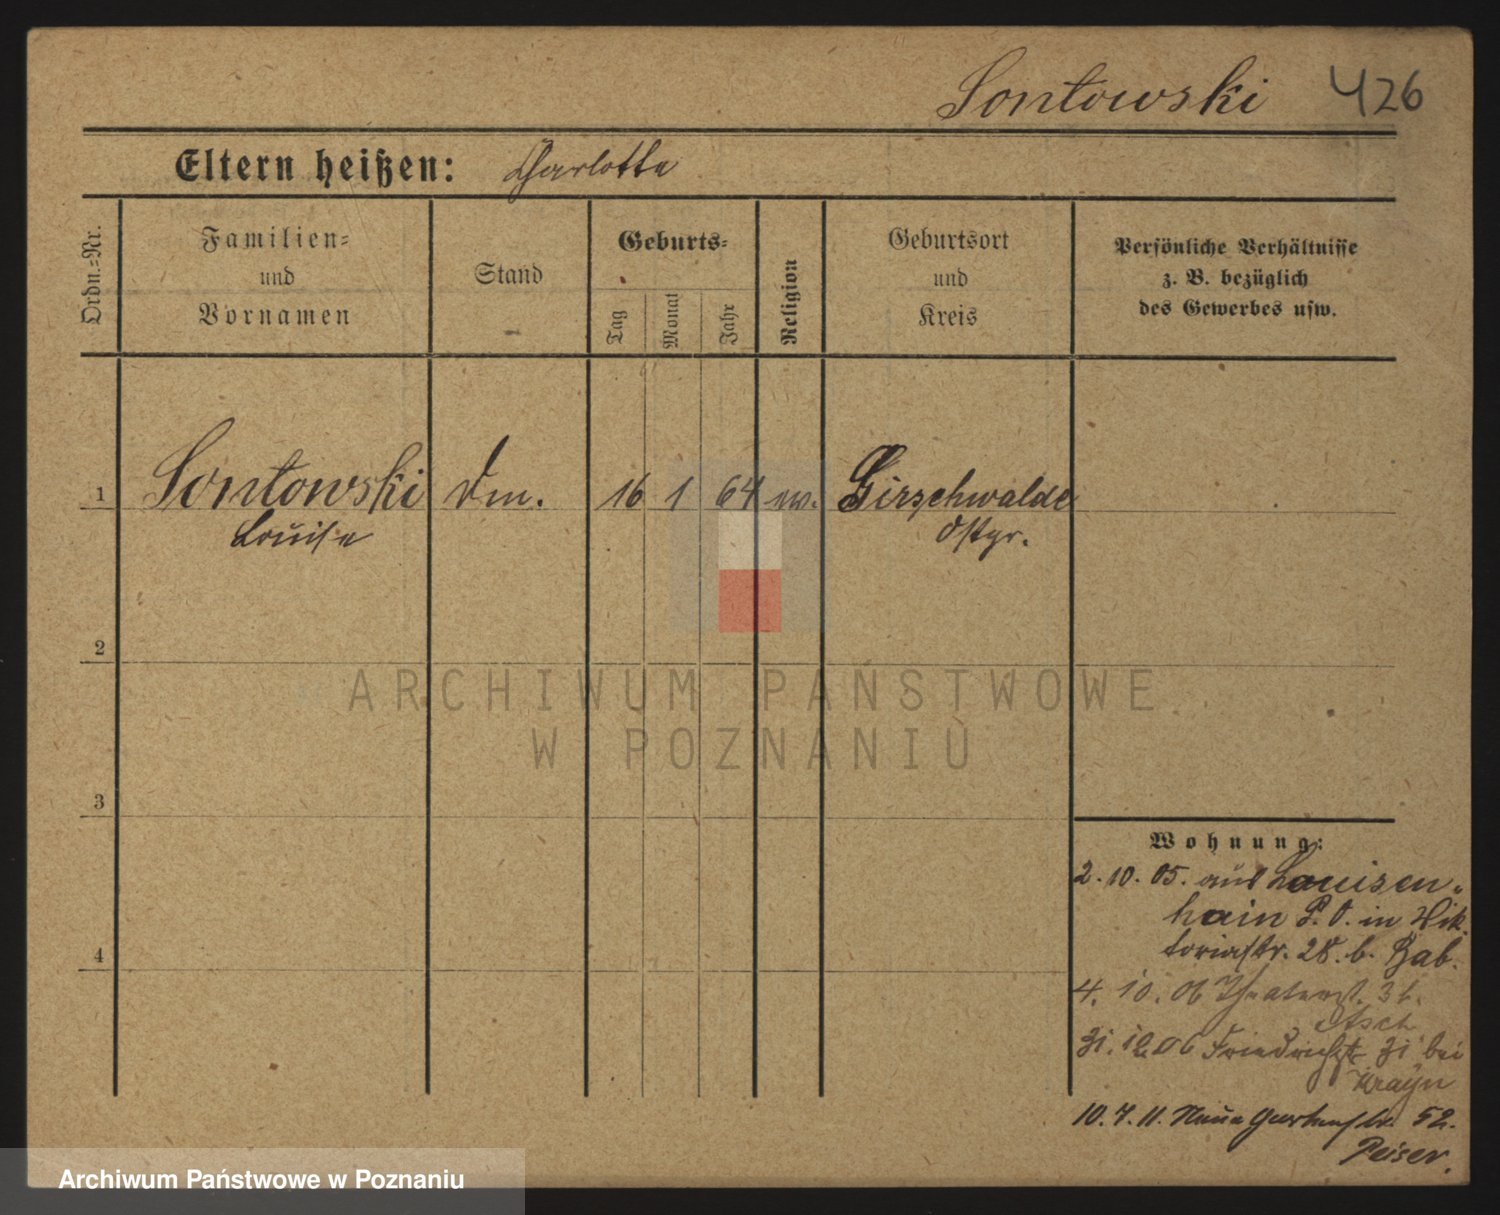 Sontowski 426
Eltern heißen: Charlotte
Ordn.=Nr.
Familien=
und
Vornamen
Stand
Geburts=
Tag
Monat
Jahr
Religion
Geburtsort
und
Kreis
Persönliche Verhältnisse
z. B. bezüglich
des Gewerbes usw.
1 Sontowski 16 1 64 ev. Girschwalde
Louise Ostpr.
2
3
4
Wohnung:
2. 10. 05. aus Louisen-
hain P. O. in Vik
toriastr. 28. b. Gab.
4. 10. 06 Theaterst. 3 b.
31. 12. 06 Friedrichst 31 bei
Krayn
10. 7. 11. Neue Gartenstr. 52.
Peiser.
ARCHIWUM PAŃSTWOWE
W POZNANIU
Archiwum Państwowe w Poznaniu